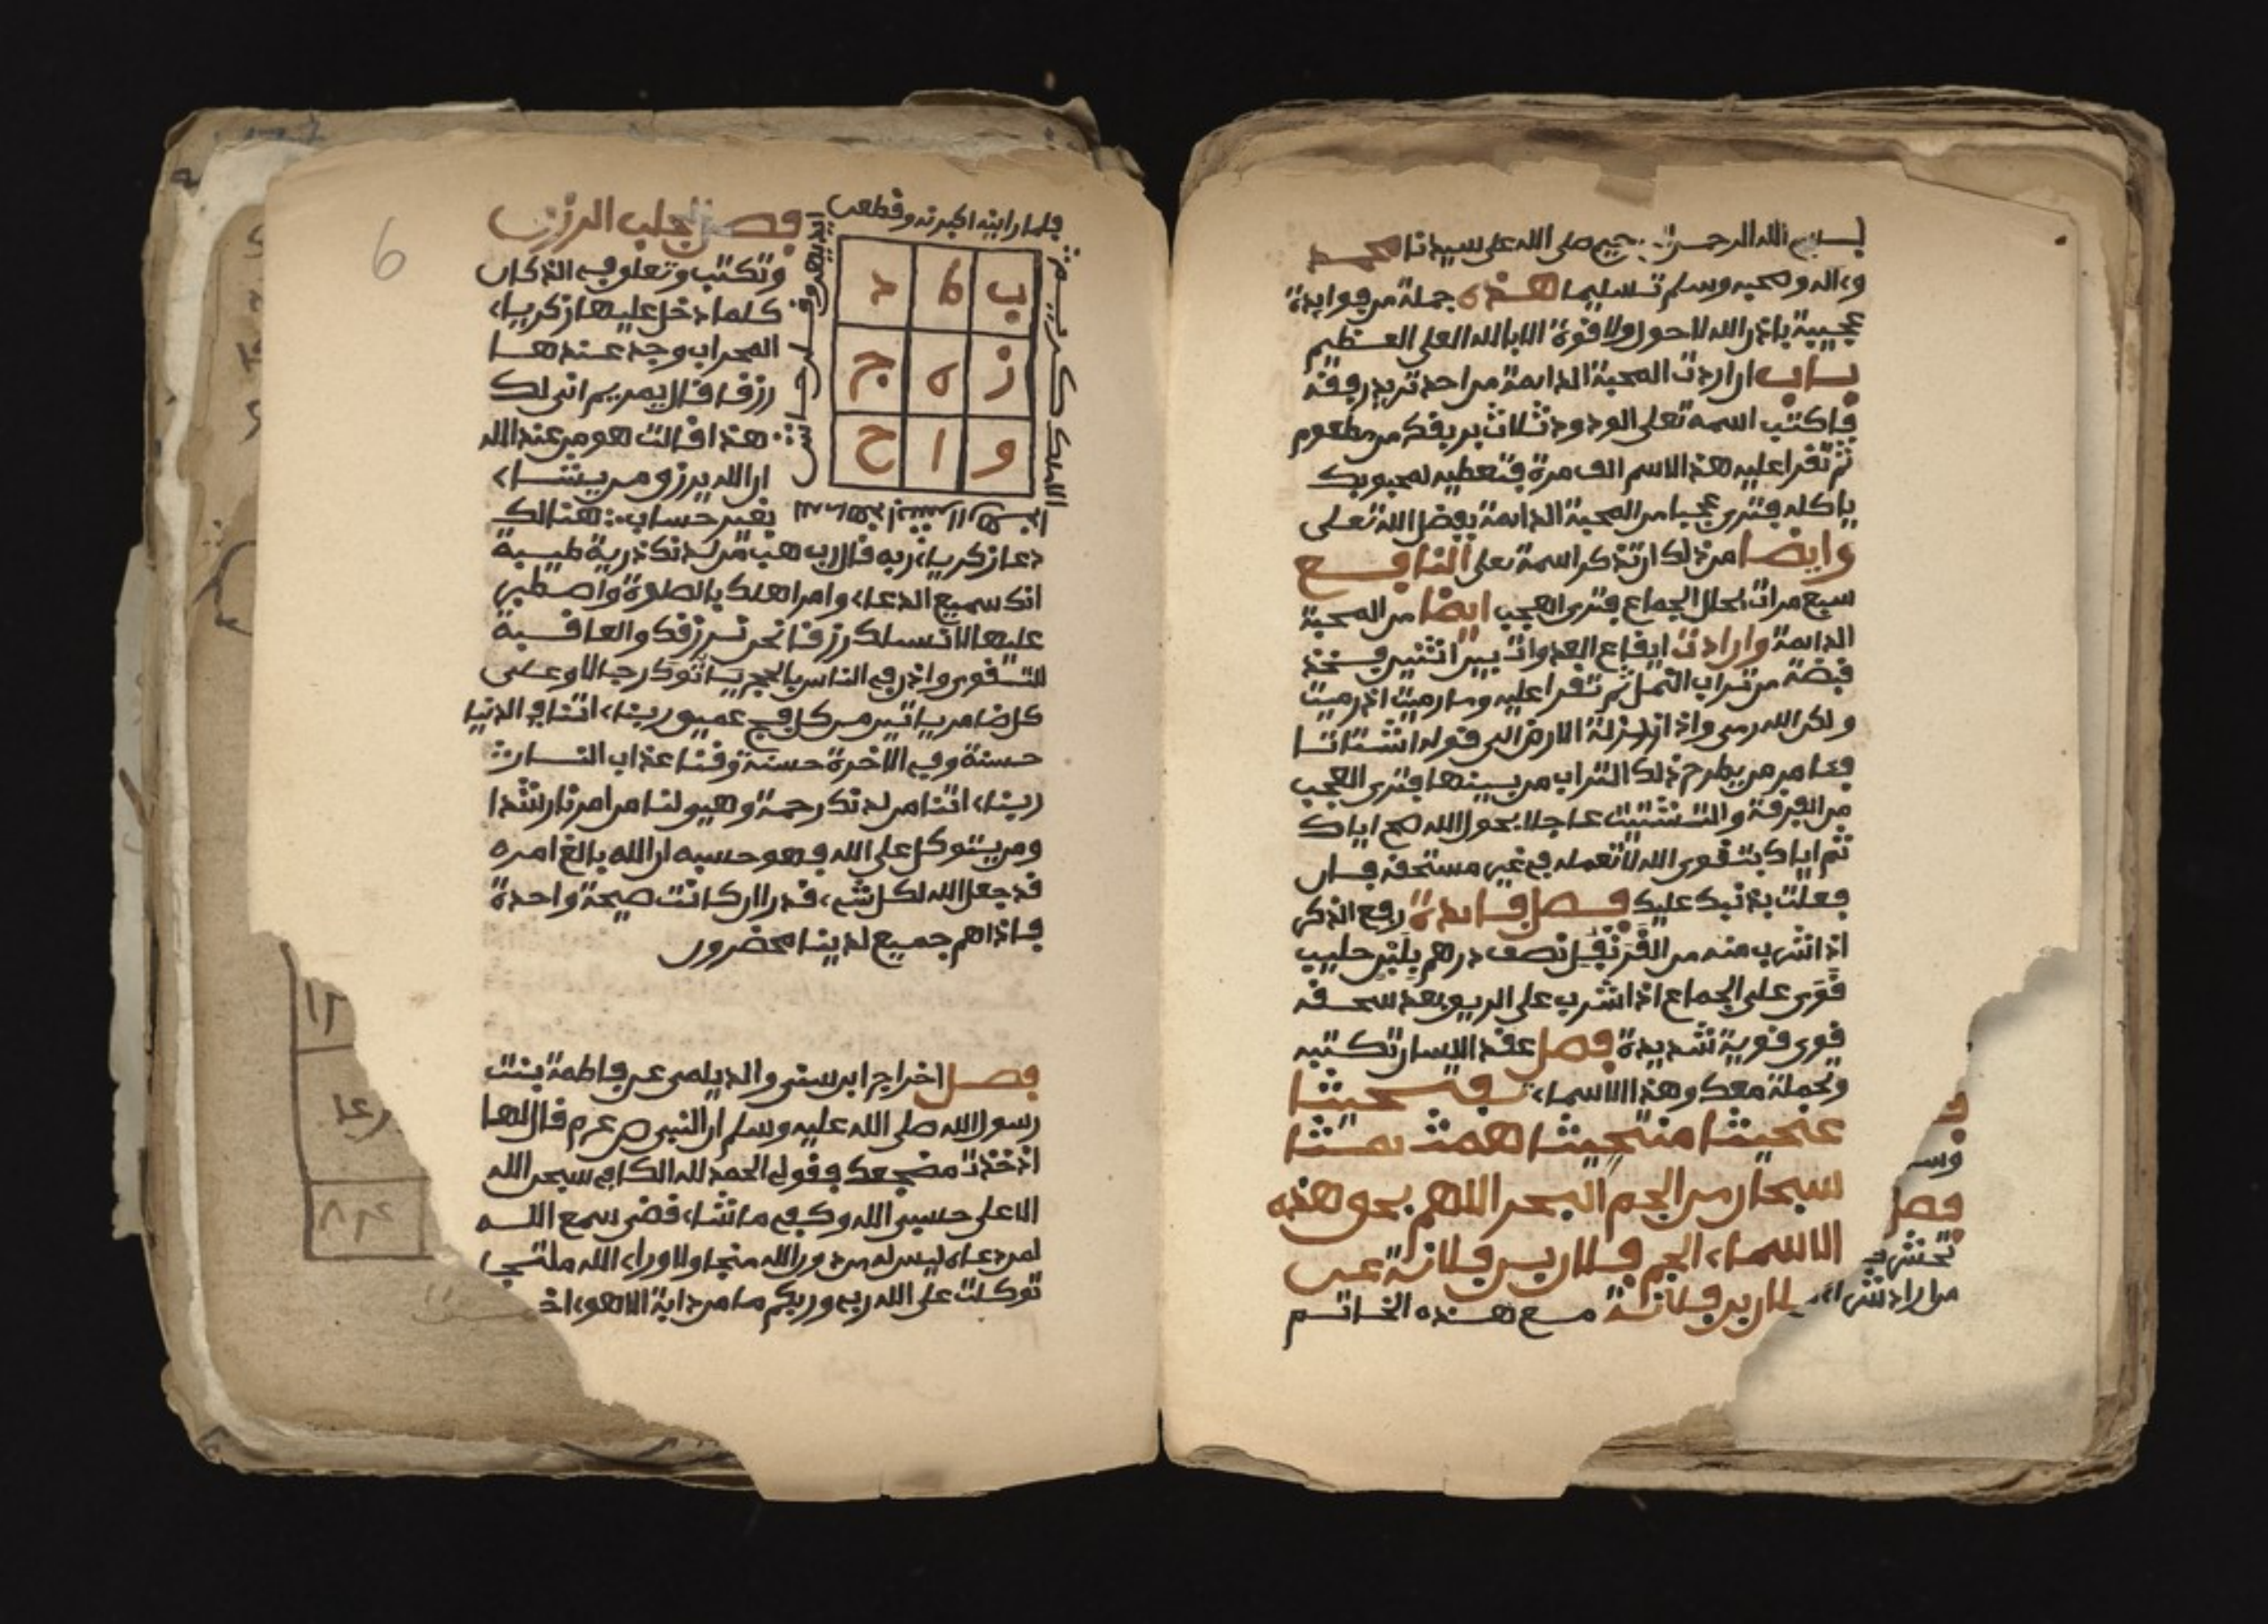 بسم الله الرحمن الرحيم صلى الله على سيدنا محمد
وءاله وصحبه وسلم تسليما هذه جملة من فوايدة
عجيبة باذن الله لا حول ولا قوة الا بالله العلي العظيم
باب ان اردت المحبة الدايمة من احد تريد رفقه
فاكتب اسمه تعلى الودود ثلاث بريفك من مطعوم
ثم تقرا عليه هذ الاسم الف مرة فتعطيه لمحبوبك
ياكله فترى عجبا من المحبة الدايمة بفضل الله تعلى
وايضا من ذلك ان تذكر اسمه تعلى النافع
سبع مرات بحال الجماع فترى العجب ايضا من المحبة
الدايمة وان اردت ايقاع العدوات بين اثنين فخذ
قبضة من تراب النمل ثم تقرا عليه وما رميت اذ رميت
ولكن الله رمى واذا زلزلة الارض الى قوله اشتاتا
من يطرح ذلك التراب من بينها فترى العجب
من الفرقة والتشتيت عاجلا بحول الله صح اياك
ثم اياك بتقوى الله لا تعمله في غير مستحقه فان
فعلت بذنبك عليك فصل فايدة رفع الذكر
اذا اشرب منه من القرنفل نصف درهم بلبن حليب
قوى على الجماع اذا اشرب على الريو بعد سحقه
قوى قوية شديدة فصل عقد اللسان تكتبه
وتجمله معك وهذ الاسماء
سبحان من الجم البحر اللهم بحق هذه
الاسماء الجم فلان بن فلانة عن
فلان بن فلانة مع هذه الخاتم
فلما راينه اكبرنه وقطعن
ايديهن وقلن حاش
الا ملك كريم
ب ط د
ز ه ج
و ا ح
6
فصل لجلب الرزق
وتكتب وتعلو في الدكان
كلما دخل عليها زكرياء
المحراب وجد عندها
رزقا قال يمريم انى لك
هذا قالت هو من عند الله
ان الله يرزق من يشاء
بغير حساب هنالك
دعا زكرياء ربه قال رب هب من لدنك ذرية طيبة
انك سميع الدعاء وامر اهلك بالصلوة واصطبر
عليها لا نسلك رزقا نحن نرزقك والعاقبة
للتقوى واذن في الناس بالحج ياتوك رجالا وعلى
كل ضامر ياتين من كل فج عميق ربنا ءاتنا في الدنيا
حسنة وفي الاخرة حسنة وقنا عذاب النار
ربنا ءاتنا من لدنك رحمة وهيو لنا من امرنا رشدا
ومن يتوكل على الله فهو حسبه ان الله بالغ امره
قد جعل الله لكل شيء قدرا ان كانت صيحة واحدة
فاذا هم جميع لدينا محضرون
فصل اخراج ابن سنى والديلمى عن فاطمة بنت
رسول الله صلى الله عليه وسلم ان النبى قال لها
اذ خذت مضجعك فقولي الحمد لله الكافي سبحن الله
الاعلى حسبي الله وكفي ما شاء قضى سمع الله
لمن دعاه ليس له من دون الله منجا ولا وراء الله ملتجى
توكلت على الله ربي وربكم ما من دابة الا هو ءاخذ